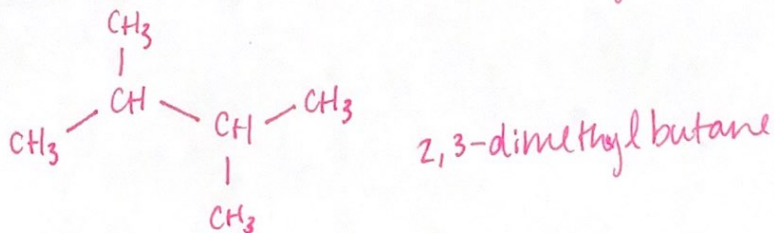 CH3
CH
CH3
CH
CH3
CH3
2,3-dimethylbutane